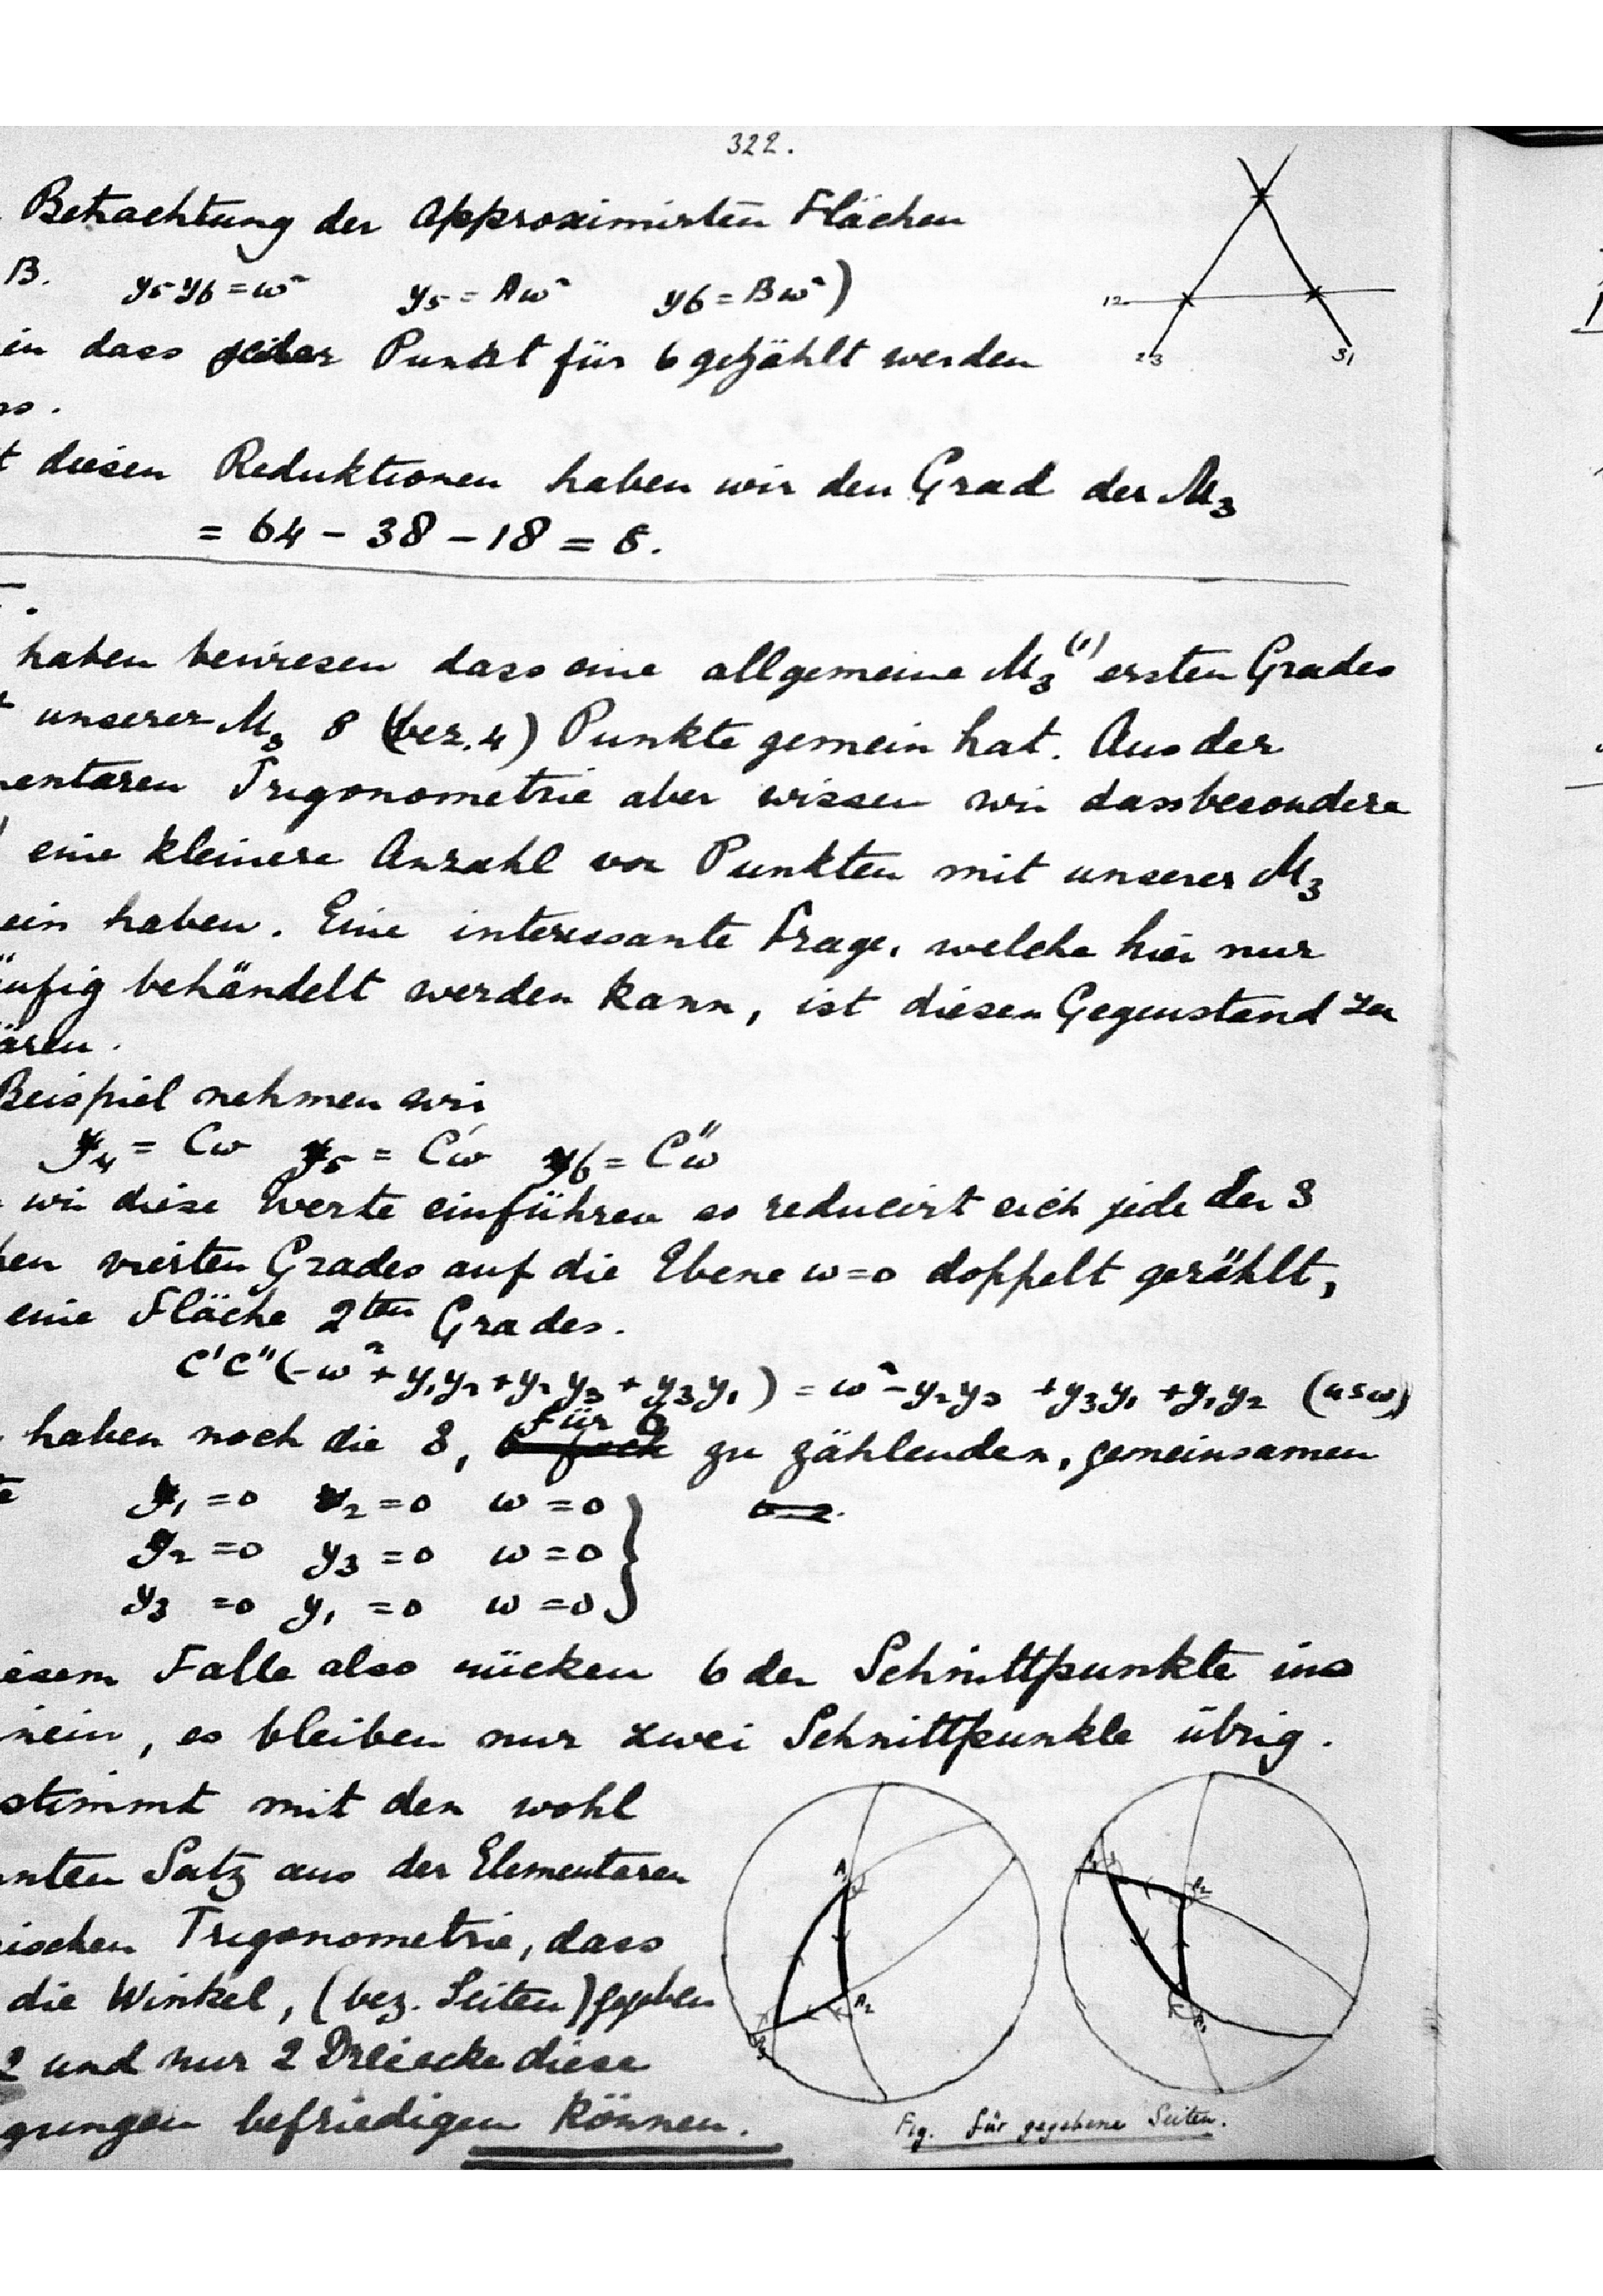 322.
Betrachtung der Approximirten Flächen
B. y5 y6 = ω² y5 = Aω² y6 = Bω²)
12
ein dass jeder Punkt für 6 gezählt werden
23 31
diesen Reduktionen haben wir den Grad der M3
= 64 – 38 – 18 = 8.
haben bewiesen dass eine allgemeine M3(1) ersten Grades
unserer M3 8 (bez. 4) Punkte gemein hat. Aus der
mentaren Trigonometrie aber wissen wir dass besondere
eine kleinere Anzahl von Punkten mit unserer M3
ein haben. Eine interessante Frage, welche hier nur
äufig behandelt werden kann, ist diesen Gegenstand zu
ären.
Beispiel nehmen wir
y4 = Cω y5 = C'ω y6 = C''ω
wir diese Werte einführen so reducirt sich jede der 3
hen vierten Grades auf die Ebene ω=0 doppelt gezählt,
eine Fläche 2ten Grades.
C'C''(-ω² + y1y2 + y2y3 + y3y1) = ω² – y2y3 + y3y1 + y1y2 (usw)
haben noch die 3, für 6 zu zählenden, gemeinsamen
y1 = 0 y2 = 0 ω = 0
y2 = 0 y3 = 0 ω = 0
y3 = 0 y1 = 0 ω = 0
iesem Falle also rücken 6 der Schnittpunkte ins
nein, es bleiben nur zwei Schnittpunkte übrig.
stimmt mit den wohl
nnten Satz aus der Elementaren
ischen Trigonometrie, dass
die Winkel, (bez. Seiten) gegeben
2 und nur 2 Dreiecke diese
gungen befriedigen können.
Fig. für gegebene Seiten.